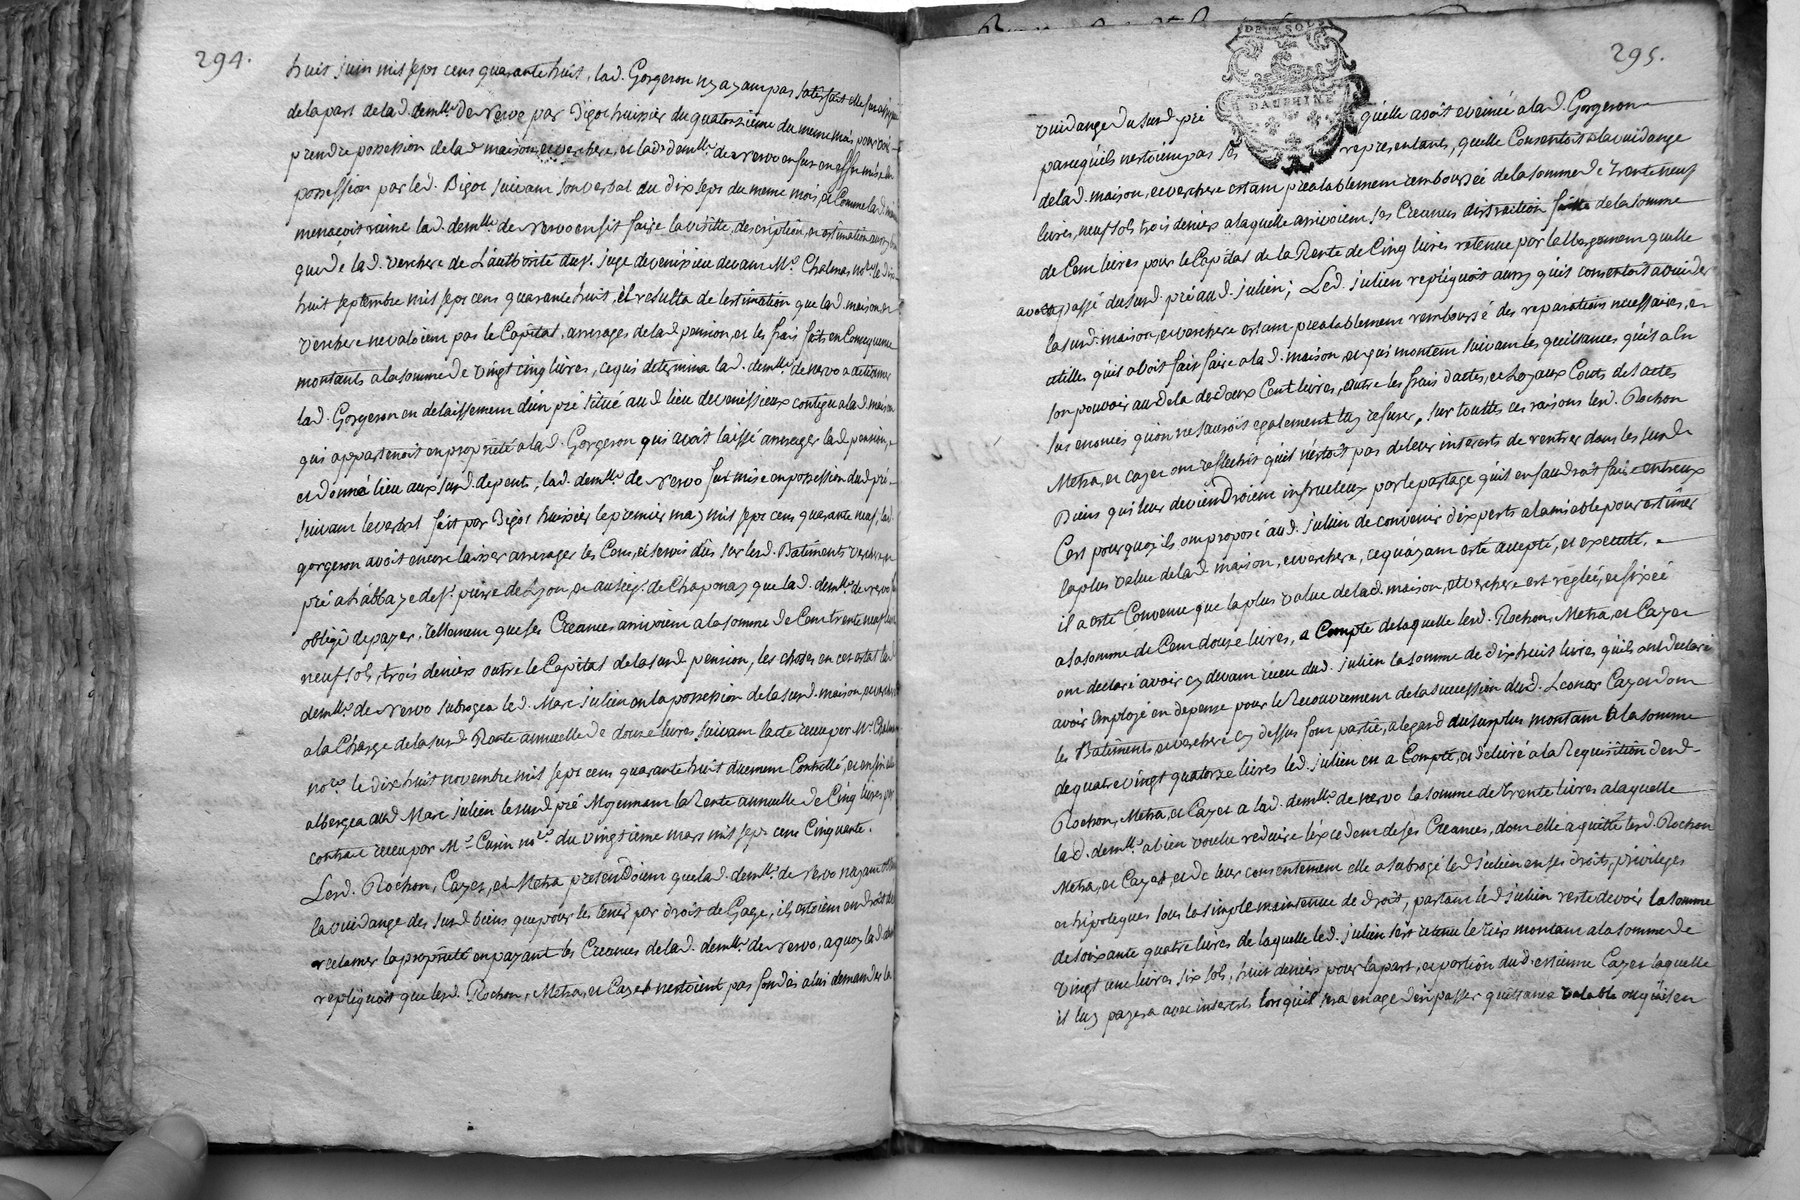 294.
huit juin mil sept cens quarante huit, lad. Gorgeron ny ayant pas satisfait elle fut
de la part de lad. demlle. de Nervo par Bigot huissier du quatorzieme du meme mois pour voir
prendre possession de lad. maison, et verchere, et lad. demlle. de nervo en fut en effet mise en
possession par led. Bigot suivant son verbal du dix sept du meme mois, et Comme lad. maison
menacoit ruine lad. demlle. de nervo en fit faire la visitte, description, et estimation
que de lad. verchere de L'authorité du sr. juge de venissieu devant Me. Chalmas nore. le dix
huit septembre mil sept cens quarante huit, il resulta de lestimation que lad. maison, et
verchere ne valoient pas le Capital, arrerages de lad. pension, et les frais faits en Consequence
montants a la somme de vingt cinq livres, ce qui determina lad. demlle. de nervo a actionner
lad. Gorgeron en delaissement d'un pré situé aud. lieu de venissieux contigu a lad. maison
qui appartenoit en proprieté a lad. Gorgeron qui avoit laissé arrerager lad. pension, -
et donné lieu aux susd. depents, lad. demlle. de nervo fut mise en possession dud. pré -
suivant le verbal fait par Bigot huissier le premier may mil sept cens quarante neuf, lad.
gorgeron avoit encore laisser arrerager les Cens, et servis dûs sur lesd. Batiments verchere
pré a l'abbaye de St. pierre de Lyon, et au seigr. de Chaponay que lad. demlle. de nervo fut
obligé de payer, tellement que ses Creances arrivoient a la somme de Cent trente neuf livres
neuf sols, trois deniers outre le Capital de la susd. pension, les choses en cet estat lad.
demlle. de nervo subrogea led. Marc julien en la possession de la susd. maison, et verchere
a la Charge de la susd. Rente annuelle de douze livres suivant l'acte receu par Me. Chalmas
nore. le dix huit novembre mil sept cens quarante huit duement Controllé, et ensuite elle
albergea aud. Marc julien le susd. pré Moyennant la Rente annuelle de Cinq livres par
contrat receu par Me. Cusin nore. du vingtieme mars mil sept cens Cinquante.
Lesd. Rochon, Cayer, et Metra pretendoient que lad. demlle. de nervo nayant
la vuidange des susd. biens que pour les tenir par droit de Gage, ils estoient en droit de
reclamer la proprieté en payant les Creances de lad. demlle. de nervo, a quoy lad. demlle.
repliquoit que lesd. Rochon, Metra, et Cayer nestoient pas fondés a lui demander la
295.
DEUX SOLS
DAUPHINE
vuidange du susd. pré quelle avoit evincée a lad. Gorgeron
parcequ'ils nestoient pas ses representants, quelle Consentoit a la vuidange
de lad. maison, et verchere estant prealablement remboursée de la somme de trente neuf
livres, neuf sols trois deniers a laquelle arrivoient ses Creances distraction faitte de la somme
de Cent livres pour le Capital de la Rente de Cinq livres retenue par l'albergement quelle
avoit passé du susd. pré aud. julien; Led. julien repliquoit aussy qu'il consentoit a vuider
la susd. maison, et verchere estant prealablement remboursé des reparations necessaires, et
utilles qu'il avoit fait faire a lad. maison, et qui montent suivant les quittances qu'il a en
son pouvoir au dela de deux Cent livres, outre les frais d'actes, et Loyaux Couts des actes
sus enoncés qu'on ne sauroit egalement luy refuser, sur touttes ces raisons lesd. Rochon
Metra, et cayer ont reflechit qu'il n'estoit pas de leur interests de rentrer dans les susd.
Biens qui leur deviendroient infructueux par le partage qu'il en faudroit faire entreux
C'est pourquoy ils ont proposé aud. julien de convenir d'experts a lamiable pour estimer
la plus value de lad. maison, et verchere, ce qu'ayant esté accepté, et executé, -
il a esté Convenu que la plus value de lad. maison, et verchere est réglée, et fixée
a la somme de Cent douze livres, a Compte de laquelle lesd. Rochon, Metra, et Cayer
ont declaré avoir cy devant receu dud. julien la somme de dix huit livres qu'ils ont declaré
avoir employé en depense pour le Recouvrement de la succession dud. Leonar Cayer dont
les Batiments, et verchere cy dessus font partie, a legard du surplus montant a la somme
de quatre vingt quatorze livres led. julien en a Compté, et delivré a la Requisition desd.
Rochon, Metra, et Cayer a lad. demlle. de nervo la somme de trente livres a laquelle
lad. demlle. a bien voulu reduire l'excedent de ses Creances, dont elle a quitté lesd. Rochon
Metra, et Cayer, et de leur consentement elle a subrogé led. julien en ses droits, privileges
et hipoteques sous la simple maintenue de droit, partant led. julien reste devoir la somme
de soixante quatre livres de laquelle led. julien s'est retenu le tiers montant a la somme de
vingt une livres six sols, huit deniers pour la part, et portion dud. estienne Cayer laquelle
il luy payera avec interests lorsqu'il sera en age d'en passer quittance valable ou qu'il en